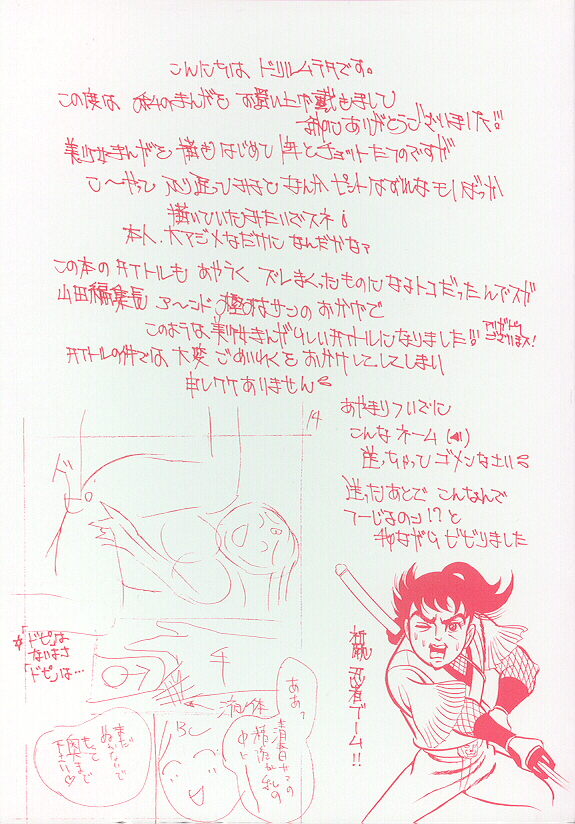 こんにちは ドリルムラタです。
この度は 私のまんがを お買い上げ戴きまして
ありがとうございました!!
美少女まんがを 描きはじめて 1年とチョットたつのですが
こ〜やって ふり返ってみると なんか ピントはずれなモノばっか
描いていたみたいですネ
本人、大マジメなだけに なんだかなァ
この本のタイトルも あやうく ズレまくったものになるトコだったんでスガ
山田編集長 アーンド サンのおかげで
このような美少女まんがらしいタイトルになりました!!
アリガトウございまス!
タイトルの件では 大変 ごめいわくを おかけして しまい
申しワケありません
あやまりついでに
こんなネーム(◀)
送っちゃって ゴメンなさい
送ったあとで こんなんで
つーじるのか!?と
我ながら ビビりました
14
ド
☆「ドピ」は
ないまさ
「ドピ」は…
チ
液体
BC
まだ
ぬかないで
もって
奥まで
下さい♡
ああっ
清春サマの
中に
忍者ブーム!!